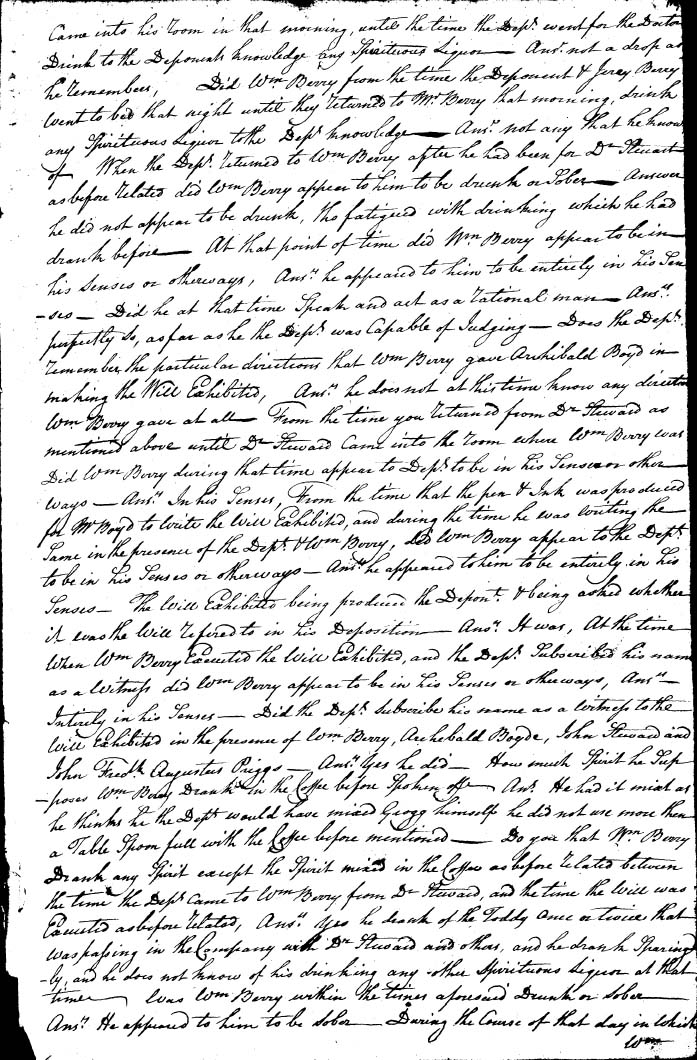 Came into his room in that morning, until the time the Dept. went for the Doctor
Drink to the Deponents knowledge any Spirituous Liquor — Ansr. not a drop as
he remembers, Did Wm Berry from the time the Deponent & Jerey Berry
went to bed that night until they returned to Mr Berry that morning, drink
any Spirituous Liquor to the Dept knowledge — Ansr. not any that he knows
of — When the Dept. returned to Wm Berry after he had been for Dr Steuart
as before related did Wm Berry appear to him to be drunk or Sober — Answer
he did not appear to be drunk, tho fatigued with drinking which he had
drank before — At that point of time did Wm Berry appear to be in
his Senses or otherways, Ansr. he appeared to him to be entirely in his Sen
-ses — Did he at that time Speak and act as a rational man — Ansr.
perfectly So, as far as he the Dept. was Capable of Judging — Does the Dept.
remember the particular directions that Wm Berry gave Archibald Boyd in
making the Will Exhibited, Ansr. he does not at this time know any direction
Wm Berry gave at all — From the time you returned from Dr Steward as
mentioned above until Dr Steward Came into the room where Wm Berry was
Did Wm Berry during that time appear to Dept. to be in his Senses or other
ways — Ansr. In his Senses, From the time that the pen & Ink was produced
for Mr Boyd to Write the Will Exhibited, and during the time he was writing the
Same in the presence of the Dept. & Wm Berry, did Wm Berry appear to the Dept.
to be in his Senses or otherways — Ansr. he appeared to him to be entirely in his
Senses — The Will Exhibited being produced the Depont. & being asked whether
it was the Will refered to in his Deposition — Ansr. It was, At the time
When Wm Berry Executed the Will Exhibited, and the Dept. Subscribed his name
as a Witness did Wm Berry appear to be in his Senses or otherways, Ansr. —
Intirely in his Senses — Did the Dept. Subscribe his name as a Witness to the
Will Exhibited in the presence of Wm Berry, Archebald Boyde, John Steward and
John Fredk. Augustus Priggs — Ansr. Yes he did — How much Spirit he Sup
-poses Wm Berry Drank in the Coffee before Spoken off — Ans. He had it mixt as
he thinks he the Dept would have mixed Grogg himself he did not use more then
a Table Spoon full with the Coffee before mentioned — Do you that Wm Berry
Drank any Spirit except the Spirit mixed in the Coffee as before related between
the time the Dept. came to Wm Berry from Dr Steward, and the time the Will was
Executed as before related, Ansr. Yes he drank of the Toddy once or twice that
was passing in the Company with Dr Steward and others, and he drank Sparing
-ly, and he does not know of his drinking any other Spirituous Liquor at that
time — Was Wm Berry within the times aforesaid Drunk or Sober —
Ansr. He appeared to him to be Sober — During the Course of that day in which
Wm